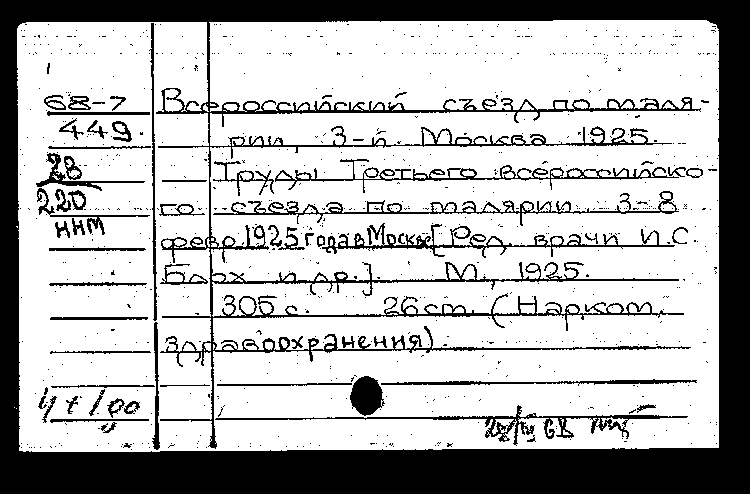 68-7 Всероссийский съезд по маля-
449. рии, 3-й. Москва 1925.
28 Труды Третьего всероссийско-
220 го съезда по малярии 3-8
ннм февр. 1925 года в Москве [Ред. врачи И.С.
Блох и др.]. М., 1925.
305 с. 26 см. (Нарком.
здравоохранения)